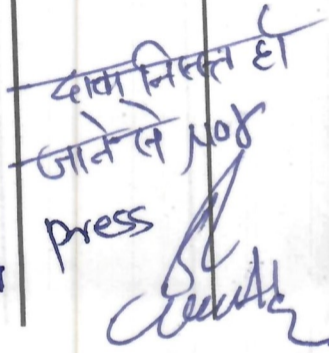 दावा निरस्त हो
जाने से not
press